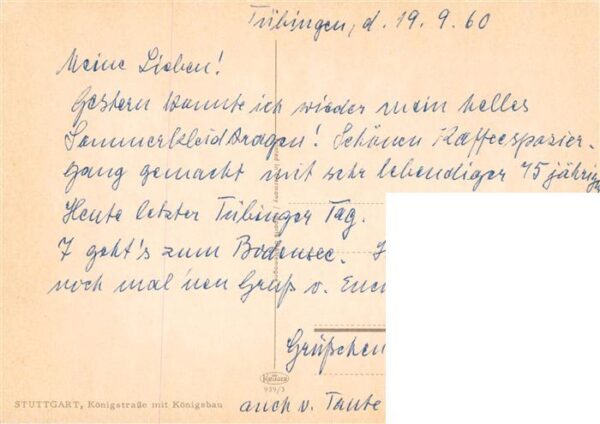 Tübingen, d. 19. 9. 60
Meine Lieben!
Gestern konnte ich wieder mein helles
Sommerkleid tragen! Schönen Kaffeespazier-
gang gemacht mit sehr lebendiger 75 jährig
Heute letzter Tübinger Tag.
7 geht's zum Bodensee.
noch mal 'nen Gruß v. Euch
Grüßchen
auch v. Tante
Krüger
939/3
STUTTGART, Königstraße mit Königsbau